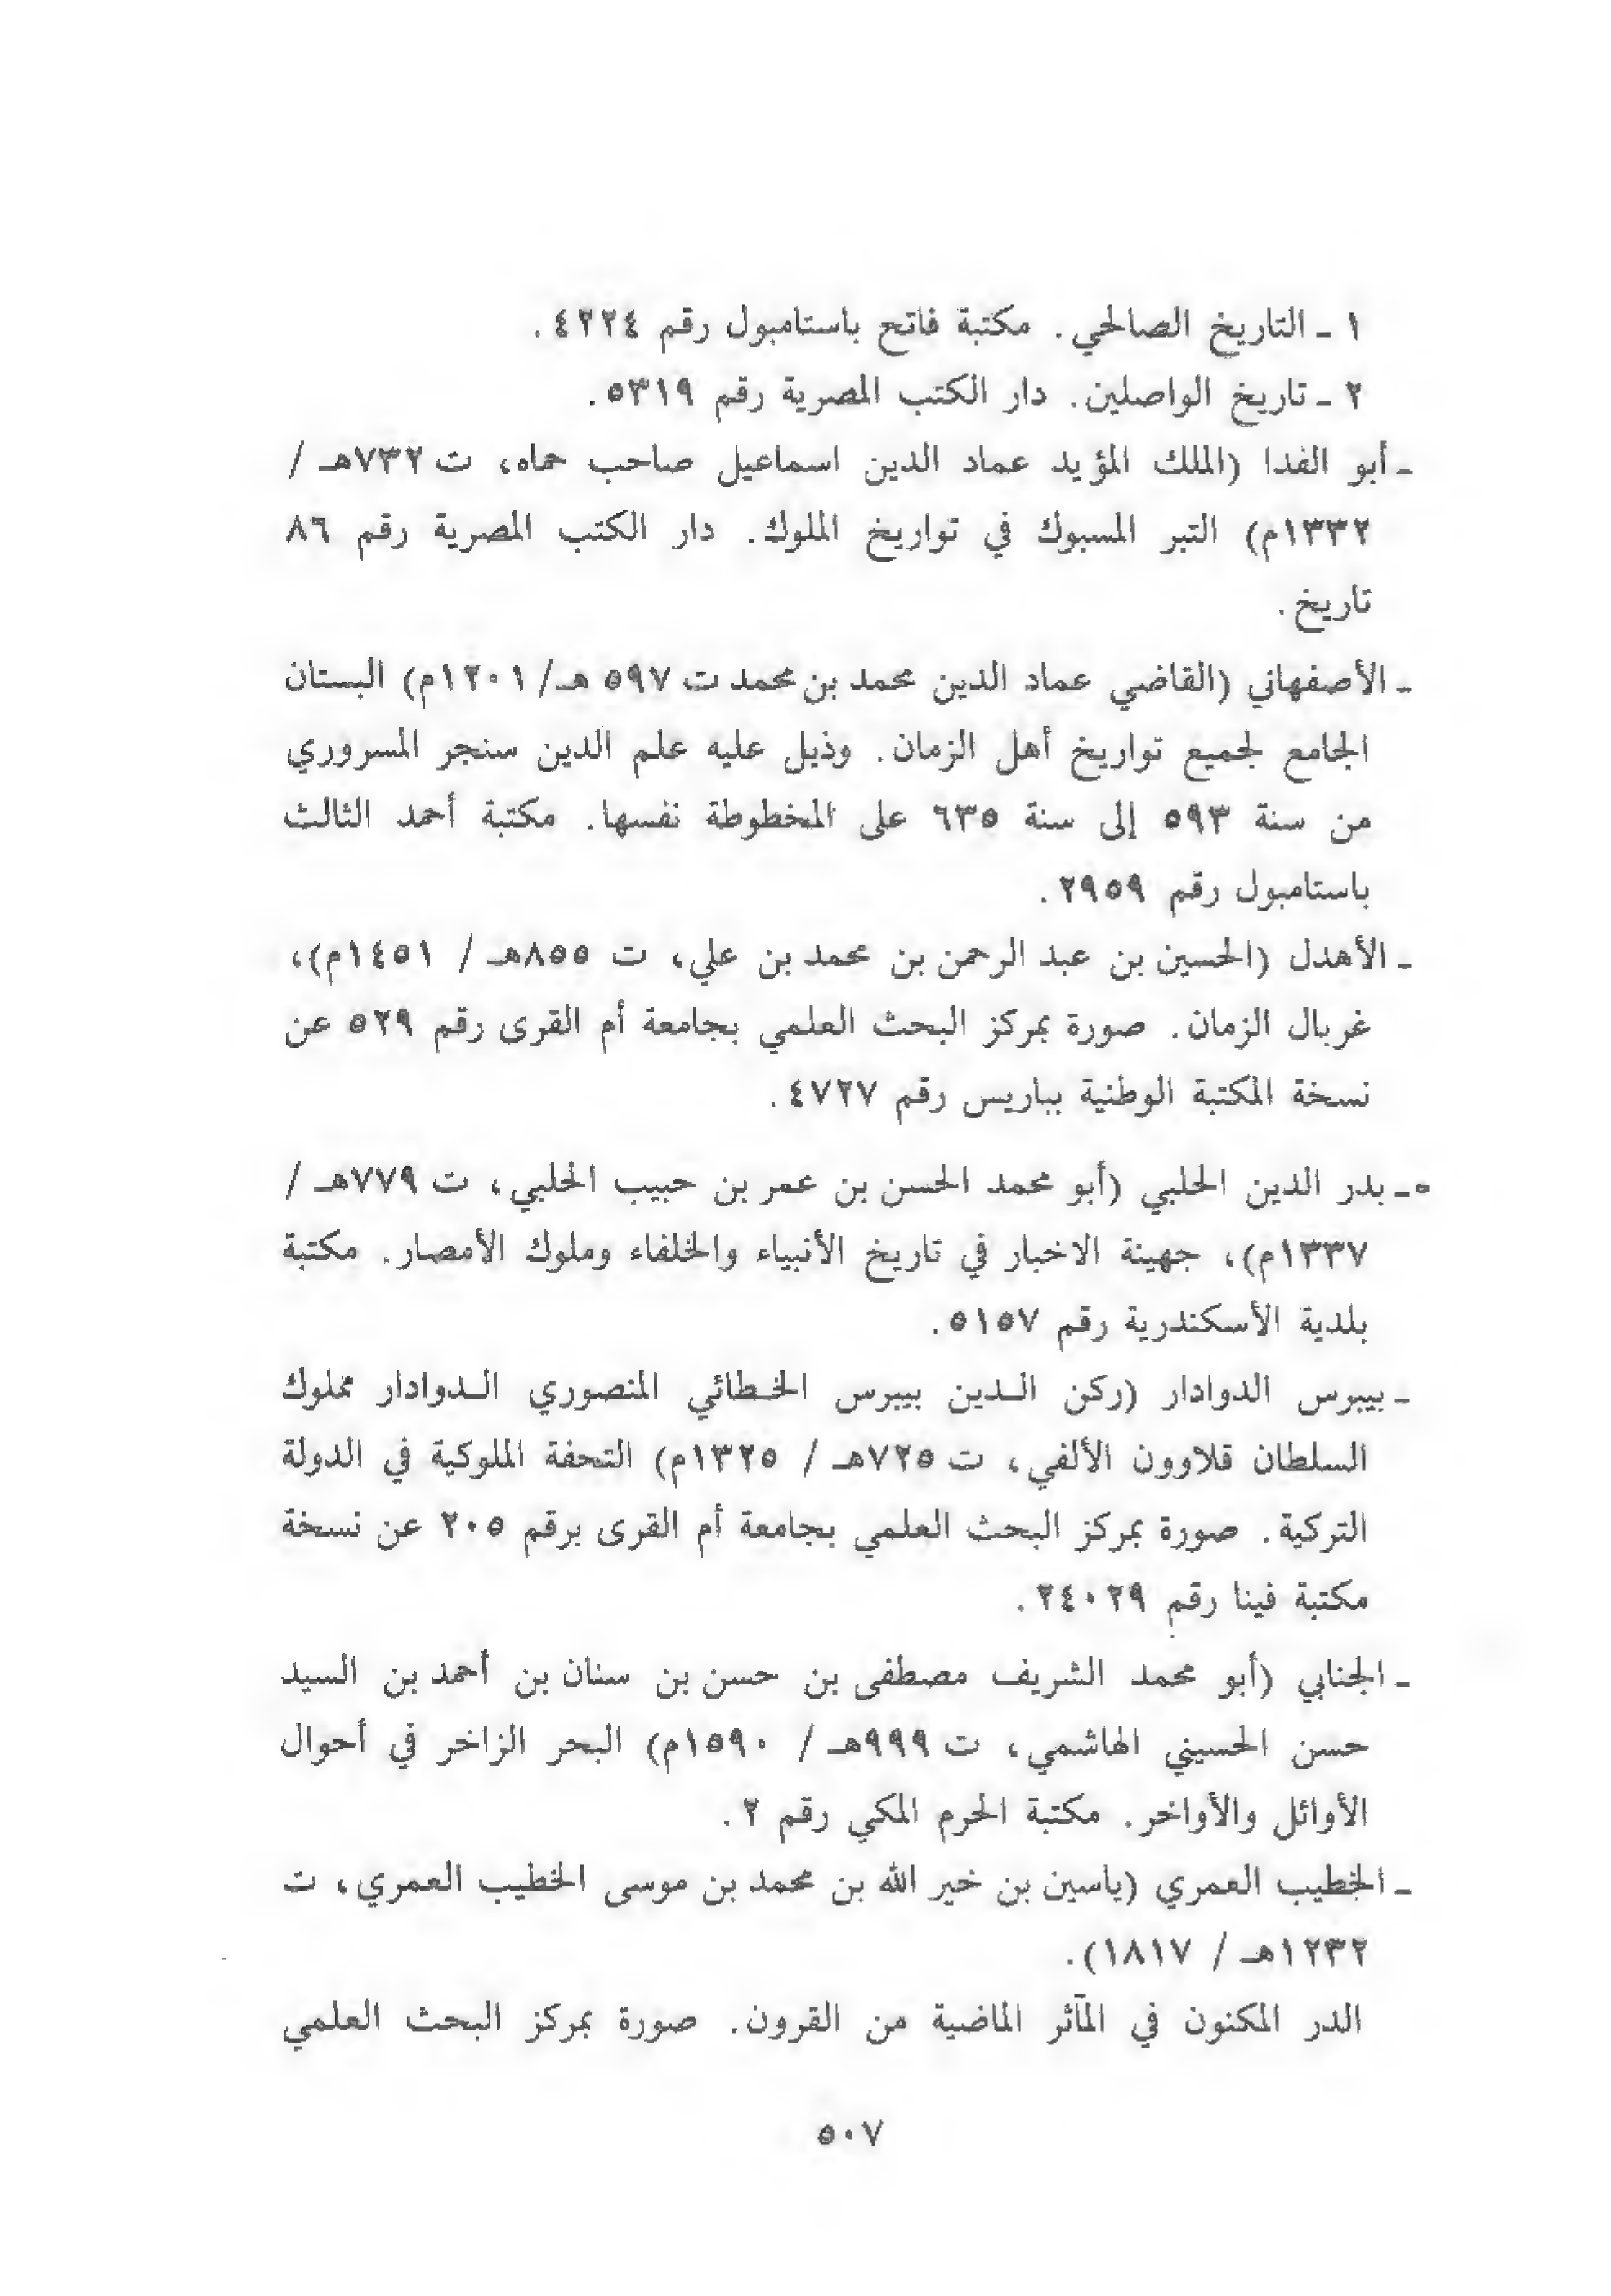 ١ ـ التاريخ الصالحي. مكتبة فاتح باستامبول رقم ٤٢٢٤.
٢ ـ تاريخ الواصلين. دار الكتب المصرية رقم ٥٣١٩.
ـ أبو الفدا (الملك المؤيد عماد الدين اسماعيل صاحب حماه، ت ٧٣٢هـ /
١٣٣٢م) التبر المسبوك في تواريخ الملوك. دار الكتب المصرية رقم ٨٦
تاريخ.
ـ الأصفهاني (القاضي عماد الدين محمد بن محمد ت ٥٩٧ هـ/ ١٢٠١م) البستان
الجامع لجميع تواريخ أهل الزمان. وذيل عليه علم الدين سنجر المسروري
من سنة ٥٩٣ إلى سنة ٦٣٥ على المخطوطة نفسها. مكتبة أحمد الثالث
باستامبول رقم ٢٩٥٩.
ـ الأهدل (الحسين بن عبد الرحمن بن محمد بن علي، ت ٨٥٥هـ / ١٤٥١م)،
غربال الزمان. صورة بمركز البحث العلمي بجامعة أم القرى رقم ٥٢٩ عن
نسخة المكتبة الوطنية بباريس رقم ٤٧٢٧.
٥ـ بدر الدين الحلبي (أبو محمد الحسن بن عمر بن حبيب الحلبي، ت ٧٧٩هـ /
١٣٣٧م)، جهينة الاخبار في تاريخ الأنبياء والخلفاء وملوك الأمصار. مكتبة
بلدية الأسكندرية رقم ٥١٥٧.
ـ بيبرس الدوادار (ركن الـدين بيبرس الخـطائي المنصوري الـدوادار مملوك
السلطان قلاوون الألفي، ت ٧٢٥هـ / ١٣٢٥م) التحفة الملوكية في الدولة
التركية. صورة بمركز البحث العلمي بجامعة أم القرى برقم ٢٠٥ عن نسخة
مكتبة فينا رقم ٢٤٠٢٩.
ـ الجنابي (أبو محمد الشريف مصطفى بن حسن بن سنان بن أحمد بن السيد
حسن الحسيني الهاشمي، ت ٩٩٩هـ / ١٥٩٠م) البحر الزاخر في أحوال
الأوائل والأواخر. مكتبة الحرم المكي رقم ٢.
ـ الخطيب العمري (ياسين بن خير الله بن محمد بن موسى الخطيب العمري، ت
١٢٣٢هـ / ١٨١٧).
الدر المكنون في المآثر الماضية من القرون. صورة بمركز البحث العلمي
٥٠٧